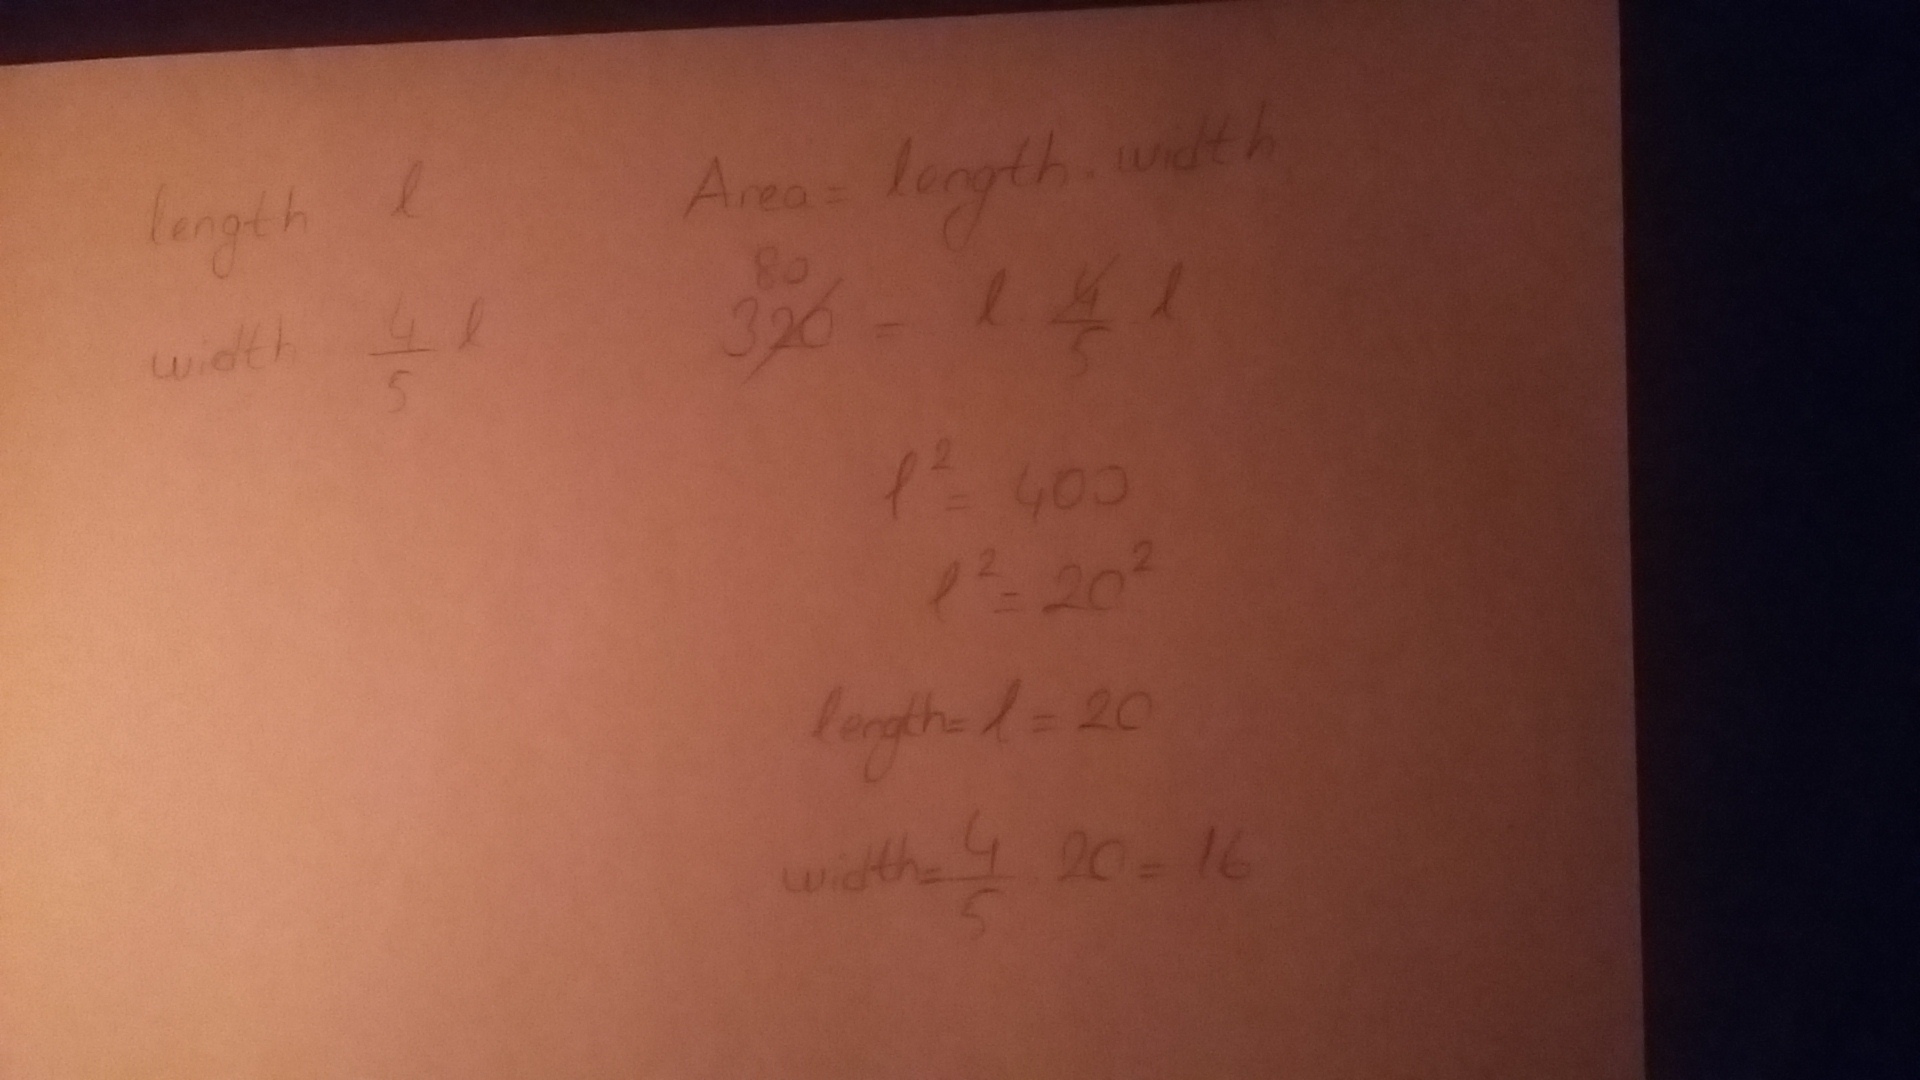 length l
width 4/5 l
Area = length . width
80
320 = l . 4/5 l
l² = 400
l² = 20²
length = l = 20
width = 4/5 . 20 = 16